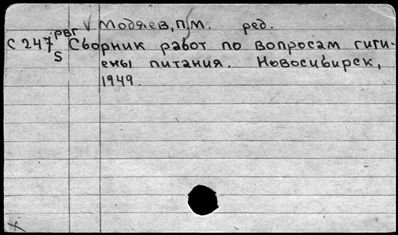 √ Модяев, П.М. ред.
РВГ
С 247 Сборник работ по вопросам гиги-
S
ены питания. Новосибирск,
1949.